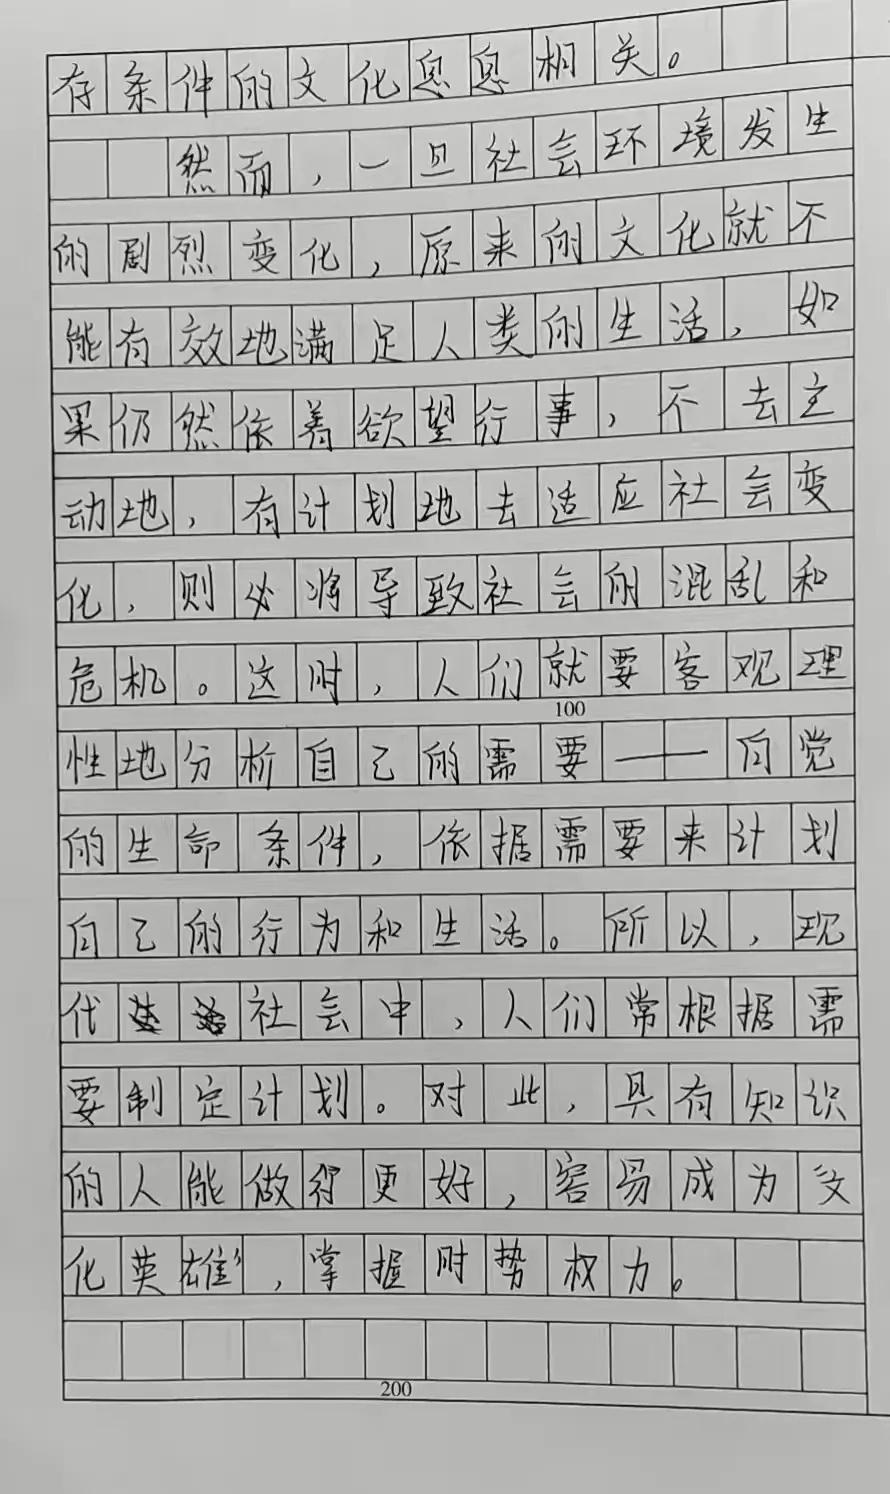 存条件的文化息息相关。
然而，一旦社会环境发生
的剧烈变化，原来的文化就不
能有效地满足人类的生活，如
果仍然依着欲望行事，不去主
动地，有计划地去适应社会变
化，则必将导致社会的混乱和
危机。这时，人们就要客观理
100
性地分析自己的需要——自觉
的生命条件，依据需要来计划
自己的行为和生活。所以，现
代社会中，人们常根据需
要制定计划。对此，具有知识
的人能做得更好，容易成为“文
化英雄”，掌握时势权力。
200